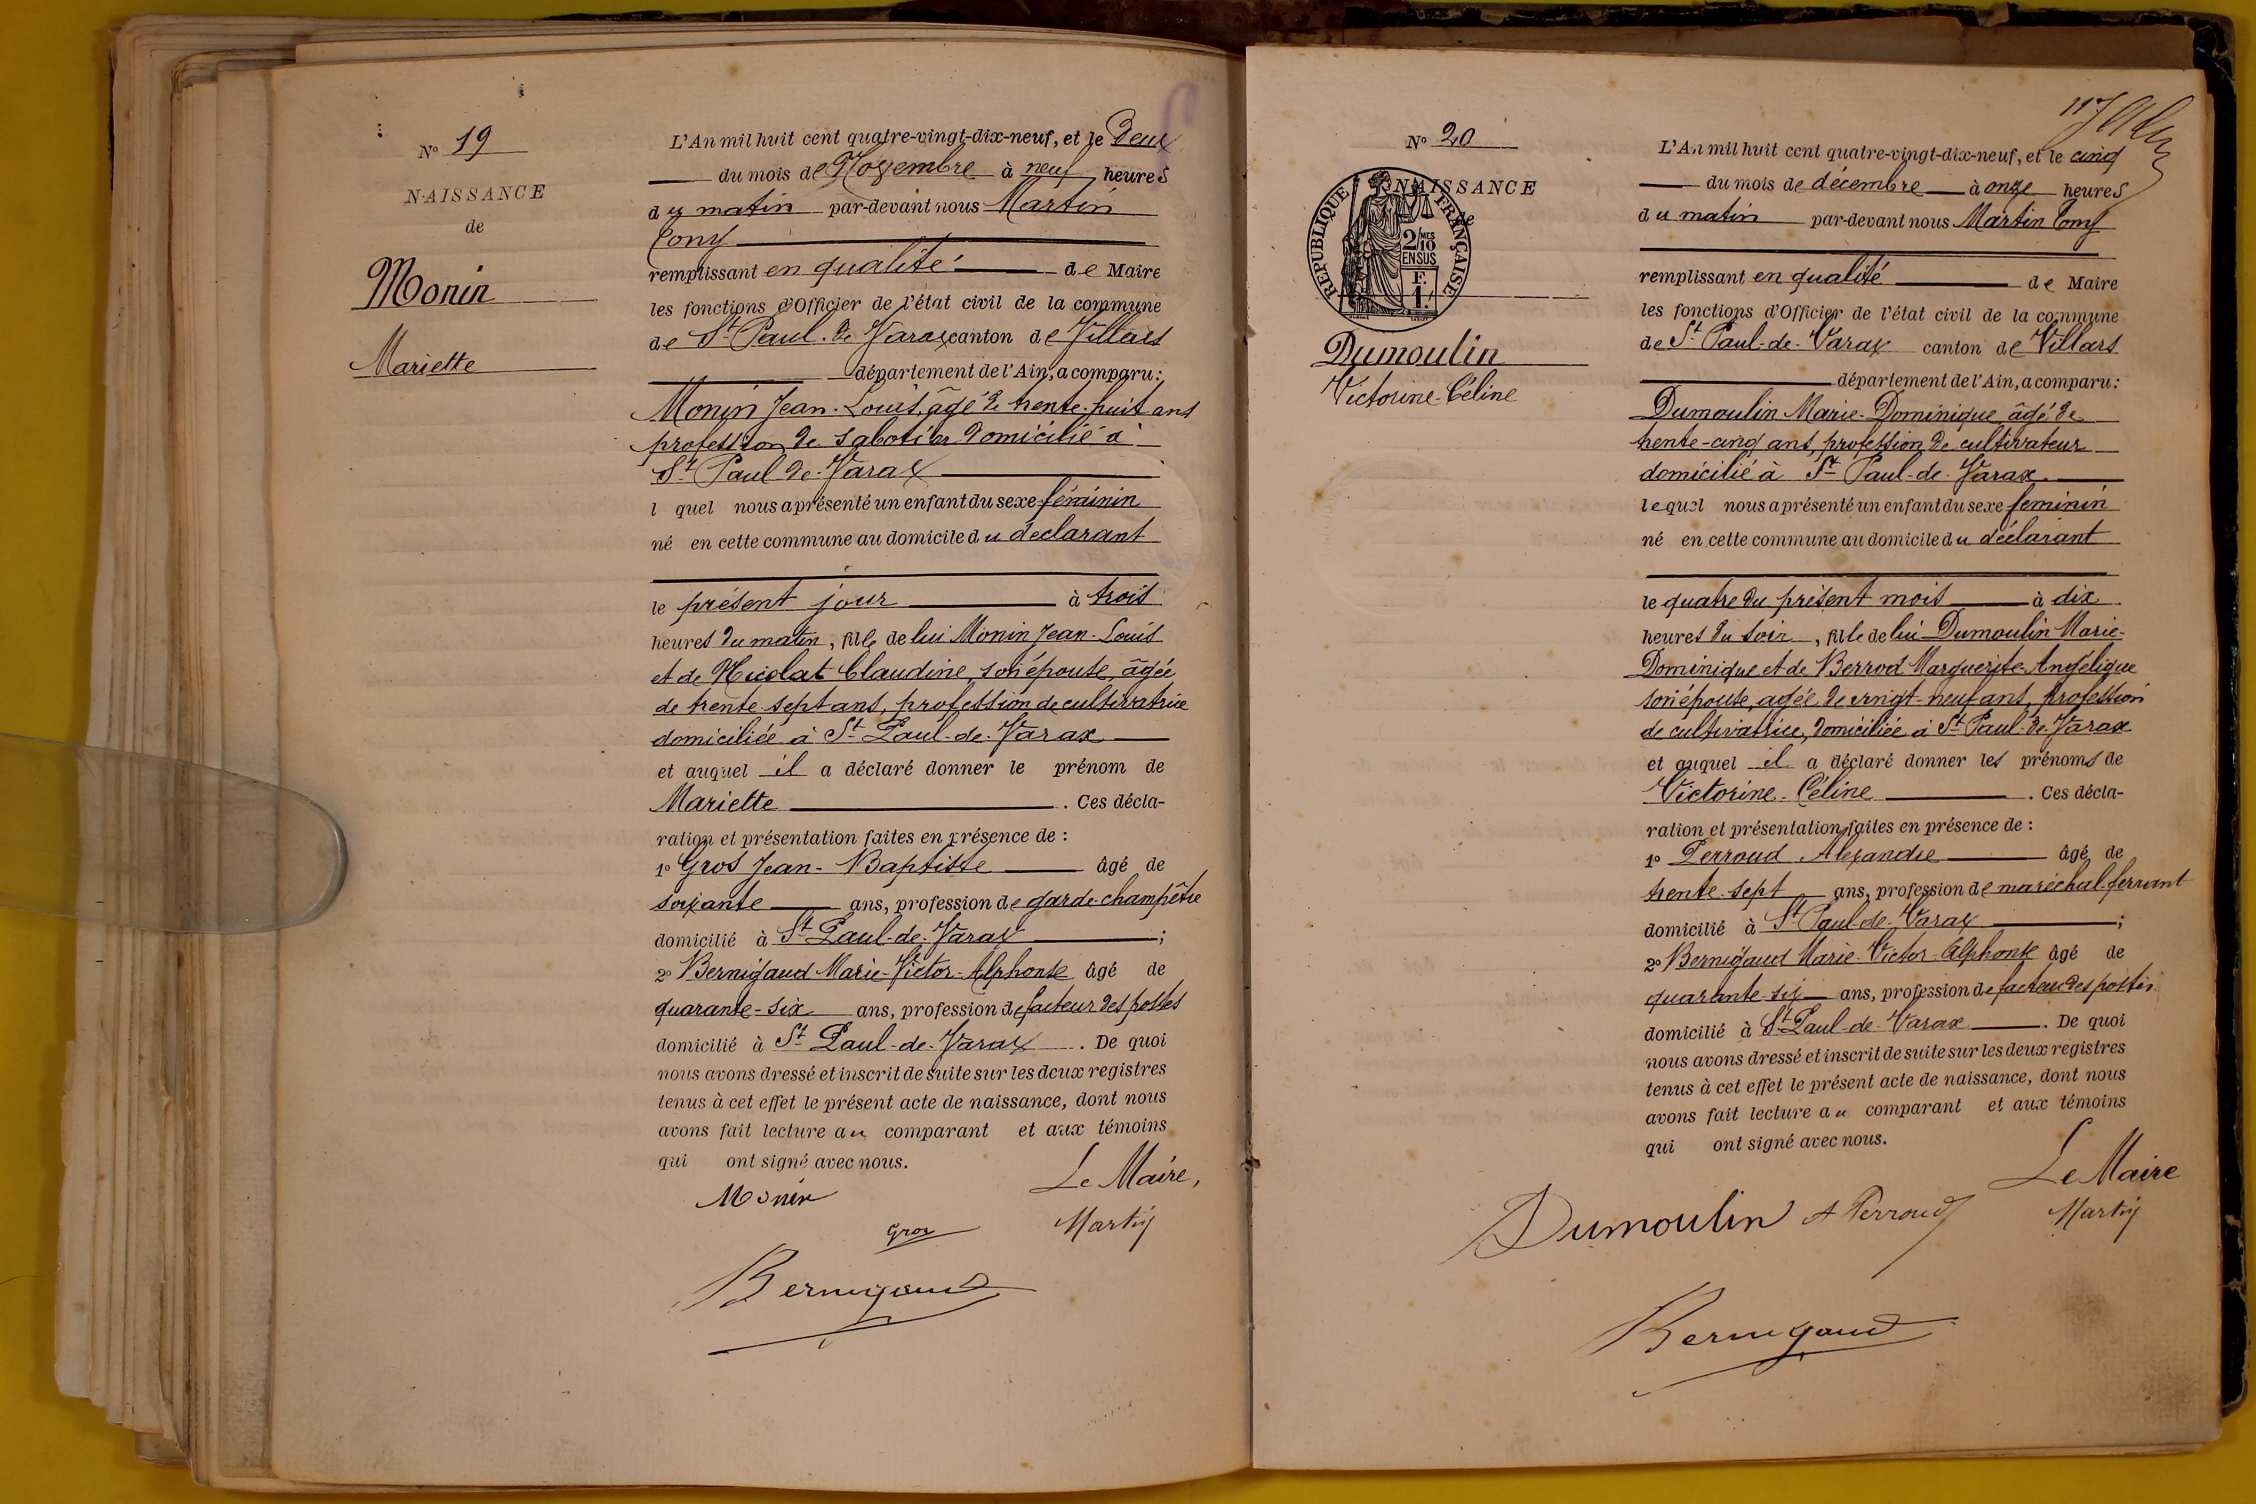 N° 19
NAISSANCE
de
Monin
Mariette
L'An mil huit cent quatre-vingt-dix-neuf, et le Deux
du mois de Novembre à neuf heures
du matin par-devant nous Martin
Tony
remplissant en qualité de Maire
les fonctions d'Officier de l'état civil de la commune
de St Paul-de-Varax canton de Villars
département de l'Ain, a comparu:
Monin Jean-Louis, âgé de trente-huit ans
profession de sabotier domicilié à
St Paul-de-Varax
l quel nous a présenté un enfant du sexe féminin
né en cette commune au domicile du déclarant
le présent jour à trois
heures du matin, fille de lui Monin Jean-Louis
et de Nicolat Claudine, son épouse, âgée
de trente-sept ans, profession de cultivatrice
domiciliée à St Paul-de-Varax
et auquel il a déclaré donner le prénom de
Mariette. Ces décla-
ration et présentation faites en présence de :
1° Gros Jean-Baptiste âgé de
soixante ans, profession de garde-champêtre
domicilié à St Paul-de-Varax ;
2° Bernigaud Marie-Victor-Alphonse âgé de
quarante-six ans, profession de facteur des postes
domicilié à St Paul-de-Varax. De quoi
nous avons dressé et inscrit de suite sur les deux registres
tenus à cet effet le présent acte de naissance, dont nous
avons fait lecture au comparant et aux témoins
qui ont signé avec nous.
Le Maire,
Monin
Gros
Martin
Bernigaud
117
N° 20
NAISSANCE
de
REPUBLIQUE FRANÇAISE
2/10 MES
EN SUS
F.
1
Dumoulin
Victorine-Céline
L'An mil huit cent quatre-vingt-dix-neuf, et le cinq
du mois de décembre à onze heures
du matin par-devant nous Martin Tony
remplissant en qualité de Maire
les fonctions d'Officier de l'état civil de la commune
de St Paul-de-Varax canton de Villars
département de l'Ain, a comparu:
Dumoulin Marie-Dominique âgé de
trente-cinq ans, profession de cultivateur
domicilié à St Paul-de-Varax.
lequel nous a présenté un enfant du sexe feminin
né en cette commune au domicile du déclarant
le quatre du présent mois à dix
heures du soir, fille de lui Dumoulin Marie-
Dominique et de Berrod Marguerite-Angélique
son épouse, agée de vingt-neuf ans, profession
de cultivatrice, domiciliée à St Paul-de-Varax
et auquel il a déclaré donner les prénoms de
Victorine-Céline. Ces décla-
ration et présentation faites en présence de :
1° Perroud Alexandre âgé de
trente-sept ans, profession de maréchal-ferrant
domicilié à St Paul-de-Varax ;
2° Bernigaud Marie-Victor-Alphonse âgé de
quarante-six ans, profession de facteur des postes
domicilié à St Paul-de-Varax. De quoi
nous avons dressé et inscrit de suite sur les deux registres
tenus à cet effet le présent acte de naissance, dont nous
avons fait lecture au comparant et aux témoins
qui ont signé avec nous.
Le Maire
Dumoulin A Perroud Martin
Bernigaud